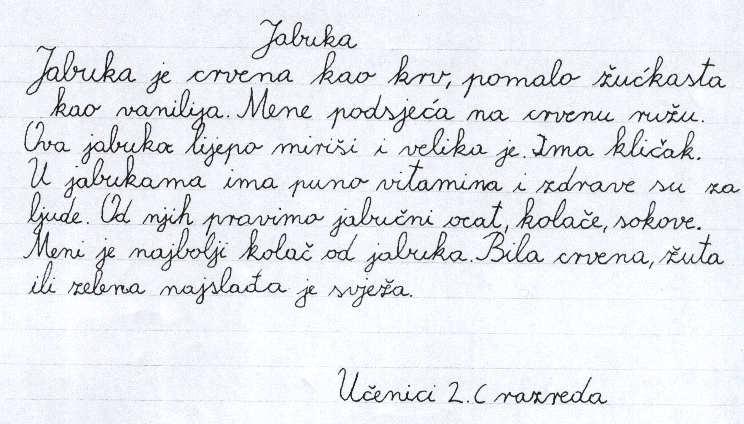 Jabuka
Jabuka je crvena kao krv, pomalo žućkasta
kao vanilija. Mene podsjeća na crvenu ružu.
Ova jabuka lijepo miriši i velika je. Ima kličak.
U jabukama ima puno vitamina i zdrave su za
ljude. Od njih pravimo jabučni ocat, kolače, sokove.
Meni je najbolji kolač od jabuka. Bila crvena, žuta
ili zelena najslađa je svježa.
Učenici 2. C razreda